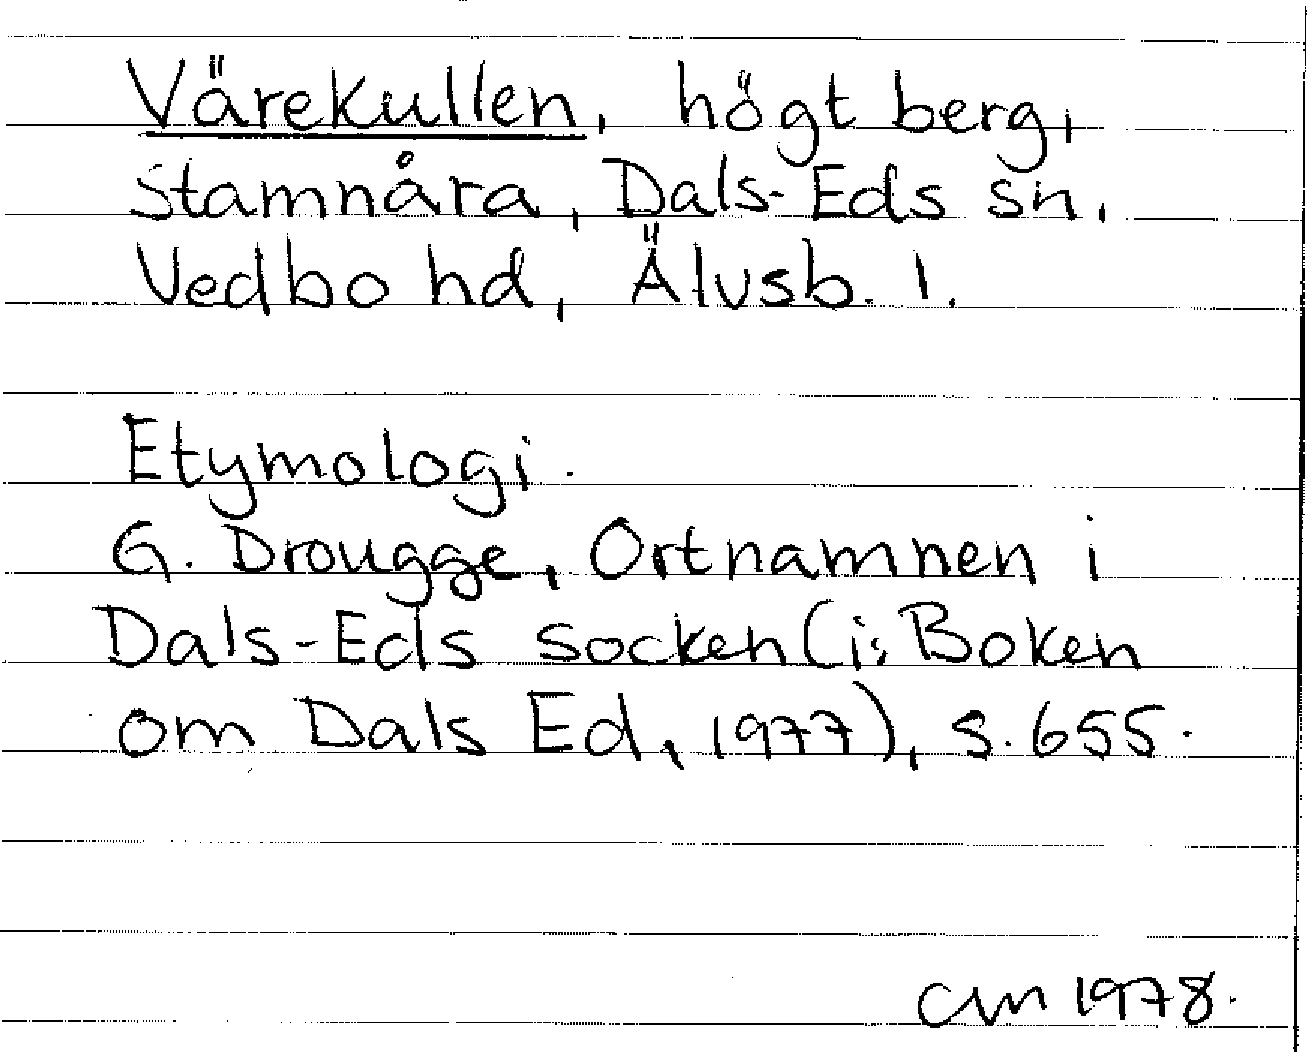 Värekullen, högt berg,
Stamnåra, Dals-Eds sn,
Vedbo hd, Älvsb. l.
Etymologi.
G. Drougge, Ortnamnen i
Dals-Eds socken (i: Boken
om Dals Ed, 1977), s. 655.
CLM 1978.